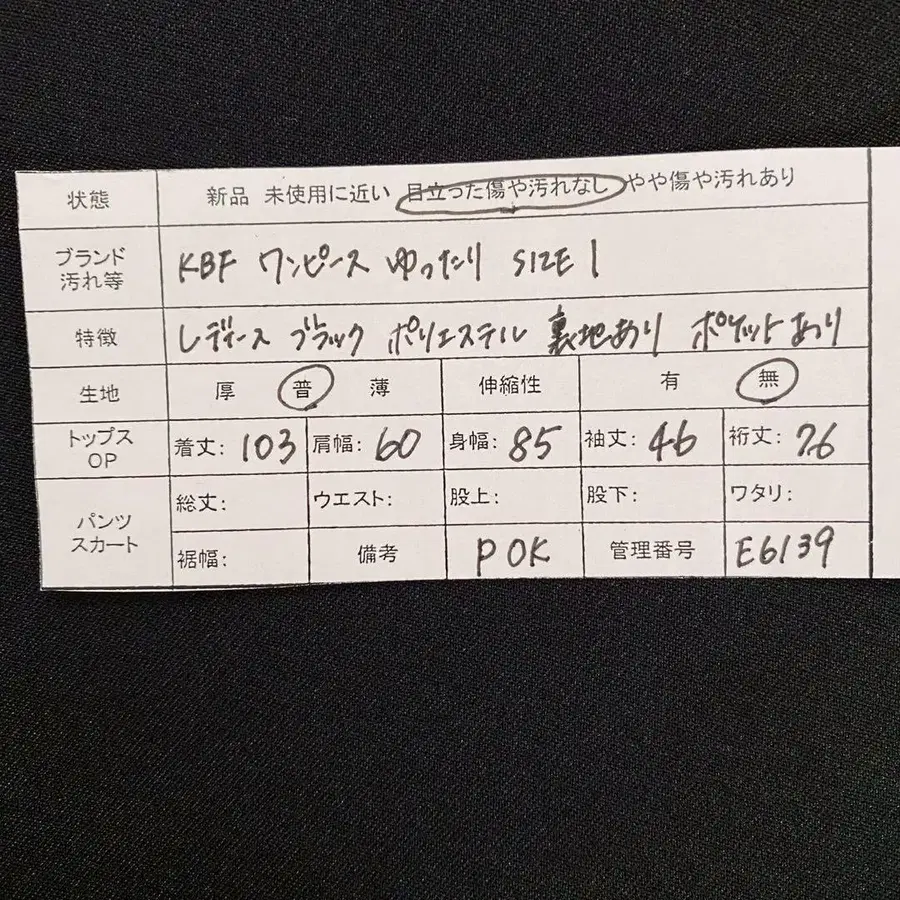 状態 新品 未使用に近い 目立った傷や汚れなし やや傷や汚れあり
ブランド 汚れ等 KBF ワンピース ゆったり SIZE 1
特徴 レディース ブラック ポリエステル 裏地あり ポケットあり
生地 厚 普 薄 伸縮性 有 無
トップス OP 着丈: 103 肩幅: 60 身幅: 85 袖丈: 46 裄丈: 76
パンツ スカート 総丈: ウエスト: 股上: 股下: ワタリ:
裾幅: 備考 P OK 管理番号 E6139